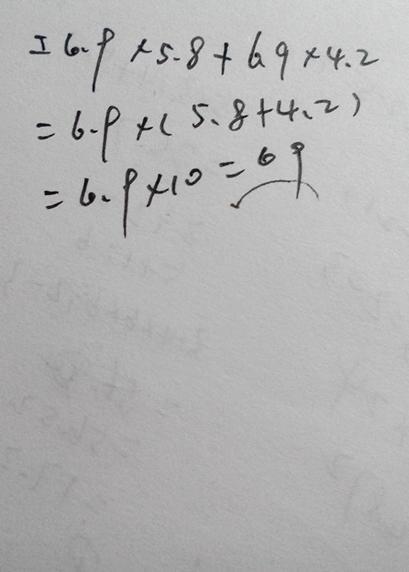 I 6.9 × 5.8 + 6.9 × 4.2
= 6.9 × ( 5.8 + 4.2 )
= 6.9 × 10 = 69